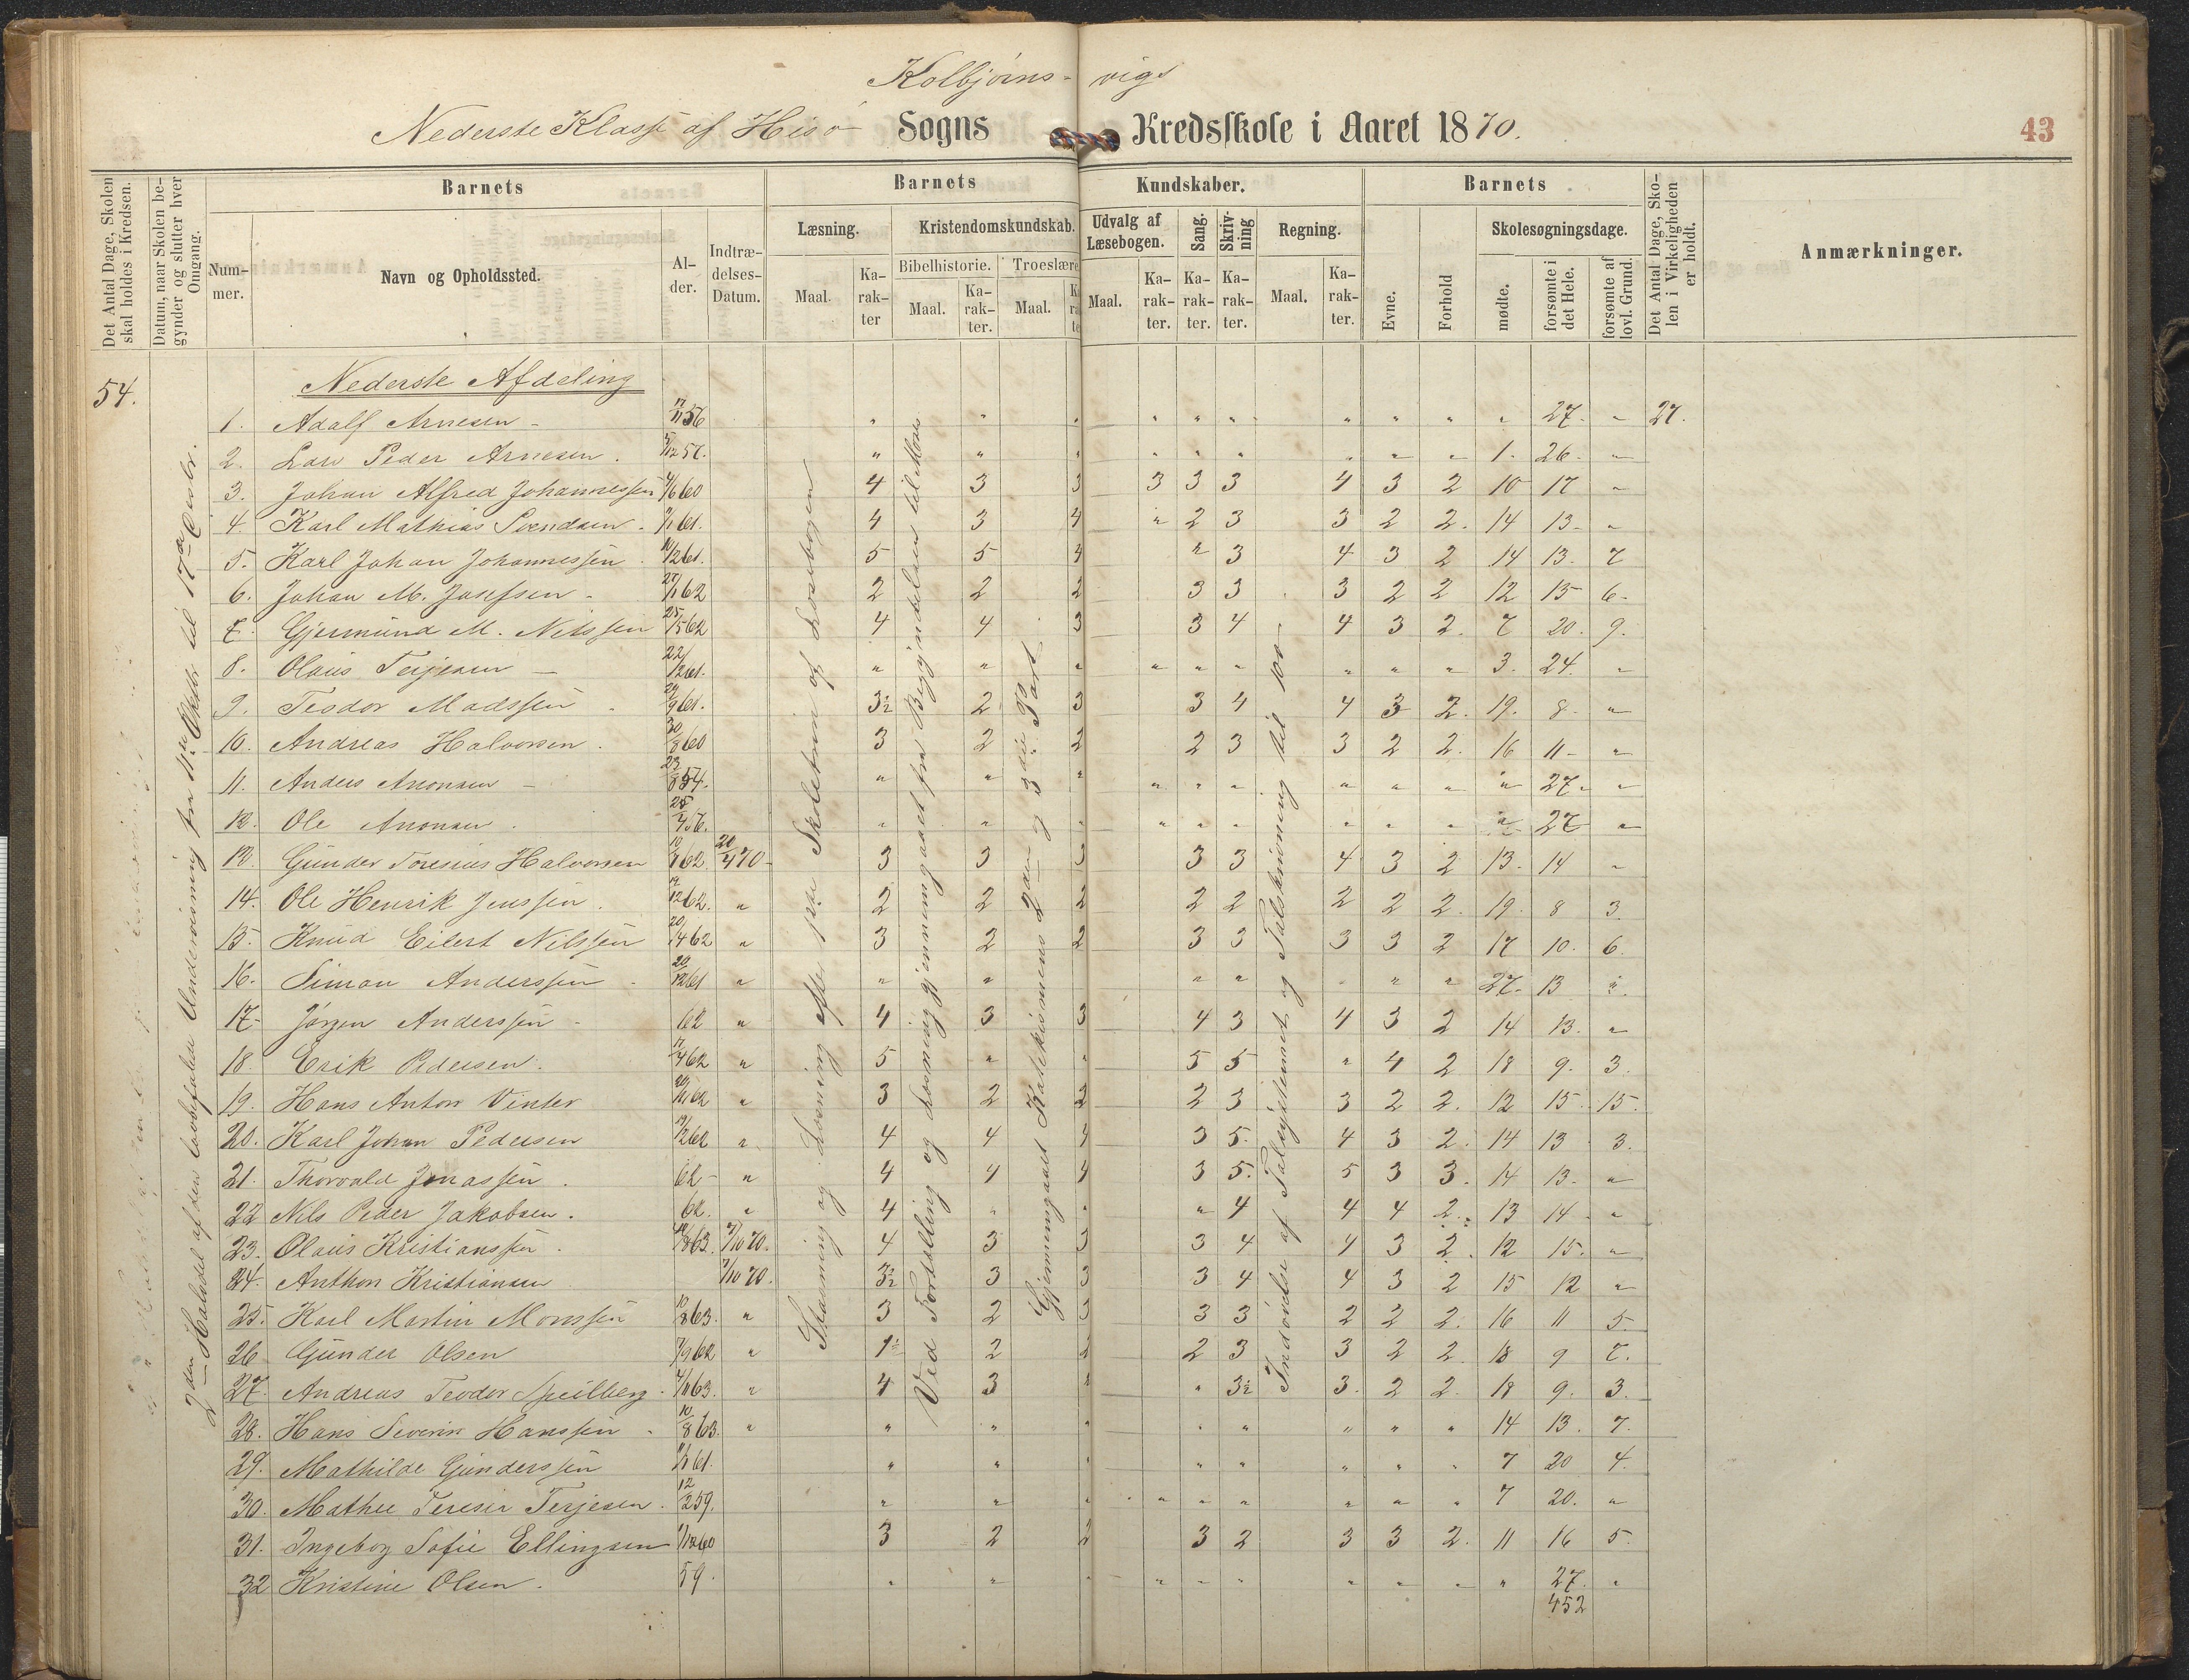 Kolbjørns- vigs
Nederste Klasse af Hisø Sogns Kredsskole i Aaret 1870.
43
Det Antal Dage, Skolen skal holdes i Kredsen.
Datum, naar Skolen begynder og slutter hver Omgang.
Barnets
Nummer.
Navn og Opholdssted.
Alder.
Indtrædelses-Datum.
Barnets Kundskaber.
Læsning.
Maal. Karakter
Kristendomskundskab.
Bibelhistorie. Troeslære
Maal. Karakter. Maal.
Udvalg af Læsebogen.
Maal. Karakter.
Sang. Karakter.
Skrivning Karakter.
Regning.
Maal. Karakter.
Barnets
Evne. Forhold
Skolesøgningsdage.
mødte. forsømte i det Hele. forsømte af lovl. Grund.
Det Antal Dage, Skolen i Virkeligheden er holdt.
Anmærkninger.
54.
2den Halvdel af den lovbefalede Underviisning fra 11te Oktbr. til 17de Decbr.
Stavning og Læsning efter Læsebogen
Ved Fortælling og Læsning gjennemgaaet fra Begyndelsen til Moses
Gjennemgaaet Katekismens 2den og 3die Part.
Indøvelse af Talsystemet og Talskrivning til 100
Nederste Afdeling
1. Adolf Arnesen - 17/11 56 " " " " " " " " " " 27. " 27.
2. Lars Peder Arnesen. 5/12 57. " " " " " " " " " 1. 26. "
3. Johan Alfred Johannessen 4/6 60 4 3 3 3 3 3 4 3 2 10 17 "
4. Karl Mathias Svendsen. 9/1 61. 4 3 4 " 2 3 3 2 2. 14 13. "
5. Karl Johan Johannessen 10/12 61. 5 5 4 " 3 4 3 2 14 13. 7
6. Johan M. Josefsen - 27/1 62 2 2 2 3 3 3 2 2 12 15 6.
7. Gjermund M. Nilssen 25/5 62 4 4 3 3 4 4 3 2. 7 20. 9.
8. Olaus Terjesen - 22/12 61. " " " " " " " " " 3. 24. "
9. Teodor Madssen 29/9 61. 3½ 2 3 3 4 4 3 2. 19. 8. "
10. Andreas Halvorsen. 30/8 60 3 2 2 2 3 3 2 2. 16 11 - "
11. Anders Aronsen - 23/8 54. " " " " " " " " " " 27. "
12. Ole Aronsen. 25/7 56. " " " " " " " " " " 27 "
13. Gunder Toresius Halvorsen 10/8 62. 20/4 70 - 3 3 3 3 3 4 3 2 13. 14 "
14. Ole Henrik Jenssen. 17/12 62. " 2 2 2 2 2 2 2 2. 19. 8 3
15. Knud Eilert Nilssen 20/4 62 " 3 2 2 3 3 3 3 2 17 10. 6
16. Simon Anderssen 20/12 61 " " " " " " " " 27. 13 "
17. Jørgen Anderssen - 62 " 4 3 3 4 3 4 3 2 14 13. "
18. Erik Pedersen. 17/4 62 " 5 " " 5 5 " 4 2 18 9. 3.
19. Hans Anton Vinter 62 " 3 2 2 2 3 3 2 2. 12 15. 15.
20. Karl Johan Pedersen 19/12 62 " 4 4 4 3 5. 4 3 2. 14 13 3.
21. Thorvald Jonassen. 62 - " 4 4 4 3 5. 5 3 3. 14 13. "
22 Nils Peder Jakobsen. 62. " 4 " " " 4 4 4 2. 13 14 "
23. Olaus Kristianssen. 63. 7/10 70. 4 3 3 3 4 4 3 2. 12 15. "
24. Anthon Kristiansen 7/10 70. 3½ 3 3 3 4 4 3 2 15 12 "
25. Karl Martin Monssen 10/8 63. " 3 2 3 3 3 2 2 2. 16 11 5.
26 Gunder Olsen 7/9 62 " 1½ 2 2 2 3 3 2 2. 18 9 7.
27. Andreas Teodor Speilberg. 4/11 63. " 4 3 " " 3½ 3. 2 2. 18 9. 3.
28. Hans Severin Hanssen. 10/8 63. " " " " " " " " " 14 13. 7.
29. Mathilde Gunderssen 61. " " " " " " " " 7 20 4.
30. Mathee Teresia Terjesen. 12/2 59. " " " " " " " " " 7 20. "
31. Ingeborg Sofie Ellingsen 60 3 2 2 3 2 3 3 2. 11 16 5.
32 Kristine Olsen. 59. " " " " " " " " " " 27. "
452